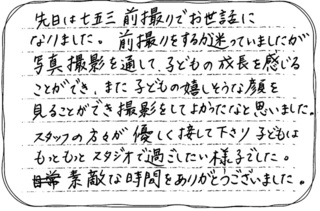 先日は七五三 前撮りでお世話に
なりました。 前撮りをするか迷っていましたが
写真撮影を通して、子どもの成長を感じる
ことができ、また子どもの嬉しそうな顔を
見ることができ撮影をしてよかったなと思いました。
スタッフの方々が 優しく接して下さり 子どもは
もっともっと スタジオで過ごしたい様子でした。
素敵な時間をありがとうございました。